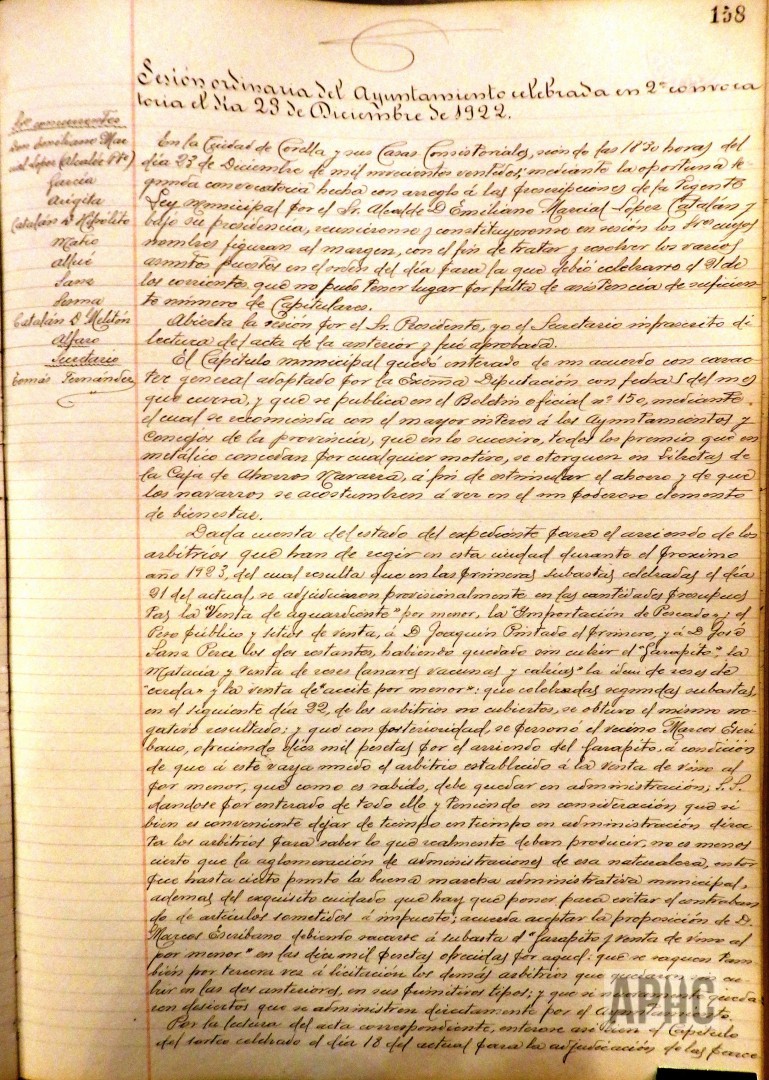 158
Sesión ordinaria del Ayuntamiento celebrada en 2ª convoca
toria el día 23 de Diciembre de 1922.
Srs concurrentes
Don Emiliano Mar
cial Lopez (Alcalde Pte)
García
Arigita
Catalán D. Hipólito
Mateo
Allué
Sanz
Loma
Catalán D. Melitón
Alfaro
Secretario
Tomás Fernández
En la Ciudad de Corella y sus Casas Consistoriales, siendo las 18'30 horas del
día 23 de Diciembre de mil novecientos ventidos; mediante la oportuna se
gunda convocatoria hecha con arreglo á las prescripciones de la vigente
Ley Municipal por el Sr. Alcalde D. Emiliano Marcial Lopez Catalán y
bajo su presidencia, reunieronse y constituyeronse en sesión los Sres cuyos
nombres figuran al margen, con el fin de tratar y resolver los varios
asuntos puestos en el orden del día para la que debió celebrarse el 21 de
los corrientes que no pudo tener lugar por falta de asistencia de suficien
te número de Capitulares.
Abierta la sesión por el Sr. Presidente, yo el Secretario infrascrito di
lectura del acta de la anterior y fué aprobada.
El Capítulo municipal quedó enterado de un acuerdo con carac
ter general adoptado por la Excma Diputación con fecha 5 del mes
que cursa, y que se publica en el Boletín oficial nº 150, mediante
el cual se recomienda con el mayor interes á los Ayuntamientos y
Concejos de la provincia, que en lo sucesivo, todos los premios que en
metálico concedan por cualquier motivo, se otorguen en Libretas de
la Caja de Ahorros Navarra, á fin de estimular el ahorro y de que
los navarros se acostumbren á ver en él un poderoso elemento
de bienestar.
Dada cuenta del estado del expediente para el arriendo de los
arbitrios que han de regir en esta ciudad durante el proximo
año 1923, del cual resulta que en las primeras subastas celebradas el día
21 del actual, se adjudicaron provisionalmente en las cantidades presupues
tas la "Venta de aguardiente" por menor, la "Importación de Pescado" y el
Peso público y sitios de venta, á D. Joaquín Pintado el primero, y á D. José
Sanz Perez los dos restantes, habiendo quedado sin cubrir el "Garapito", la
Matacía y venta de reses lanares vacunas y cabrías" la idem de reses de
"cerda" y la venta de "aceite por menor": que celebradas segundas subastas,
en el siguiente día 22, de los arbitrios no cubiertos, se obtuvo el mismo ne
gativo resultado; y que con posterioridad, se personó el vecino Marcos Escri
bano, ofreciendo diez mil pesetas por el arriendo del Garapito, á condición
de que á este vaya unido el arbitrio establecido á la venta de vino al
por menor, que como es sabido, debe quedar en administración; S.S.
dandose por enterado de todo ello y teniendo en consideración que si
bien es conveniente dejar de tiempo en tiempo en administración direc
ta los arbitrios para saber lo que realmente deban producir, no es menos
cierto que la aglomeración de administraciones de esa naturaleza, entor
pece hasta cierto punto la buena marcha administrativa municipal,
ademas del exquisito cuidado que hay que poner para evitar el contraban
do de artículos sometidos á impuesto; acuerda aceptar la proposición de D.
Marcos Escribano debiendo sacarse á subasta el "Garapito y venta de vino al
por menor" en las diez mil pesetas ofrecidas por aquel: que se saquen tam
bién por tercera vez á licitación los demás arbitrios que quedaron sin cu
brir en las dos anteriores, en sus primitivos tipos; y que si nuevamente queda
sen desiertos que se administren directamente por el Ayuntamiento.
Por la lectura del acta correspondiente, enterose así bien el Capítulo
del sorteo celebrado el día 18 del actual para la adjudicación de las parce
APHC